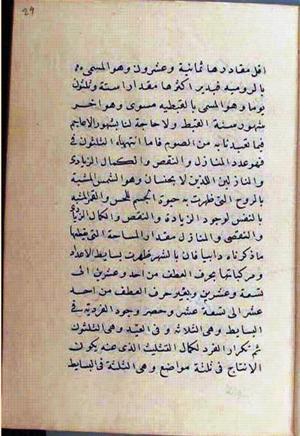 29
اقل مقادرها ثمانية وعشرون وهو المسمى
بالرومية فبدير اكثرها مقدار ستة وثلثون
يوما وهو المسمى بالقبطيه مسرى وهو اخر
شهور سنة القبط ولا حاجة لنا بشهور الاعاجم
فيما نقيد نا به من الصوم فاما انتهاء الثلثون في
فهو عدد المنازل والنقص والكمال الزيادي
والمنازلين اللذين لا يحسان وهو الشمس المشبهة
بالروح التى ظهرت به حيوة الجسم للحس والقمر المشبه
بالنفس لوجود الزيادة والنقص والكمال الزيادى
والنقصى والمنازل مقدار المساحة التى يقطعها
ما ذكرناه دايبا فان بالشهر ظهرت بسايط الاعداد
ومركباتها بحرف العطف من احد وعشرين الى
تسعة وعشرين وبغير حرف العطف من احد
عشر الى تسعة عشر وحصر وجود الفردية في
البسايط وهى الثلاثه وفى العقد وهى الثلثون
ثم تكرار الفرد لكمال التثليث الذى عنه يكون
الانتاج فى ثلثة مواضع وهى الثلثة فى البسايط